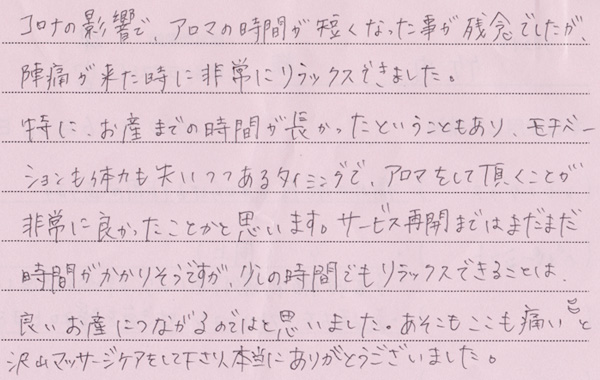 コロナの影響で、アロマの時間が短くなった事が残念でしたが、
陣痛が来た時に非常にリラックスできました。
特に、お産までの時間が長かったということもあり、モチベー
ションも体力も失いつつあるタイミングで、アロマをして頂くことが
非常に良かったことかと思います。サービス再開まではまだまだ
時間がかかりそうですが、少しの時間でもリラックスできることは、
良いお産につながるのではと思いました。あそこもここも痛いと
沢山マッサージケアをして下さり、本当にありがとうございました。